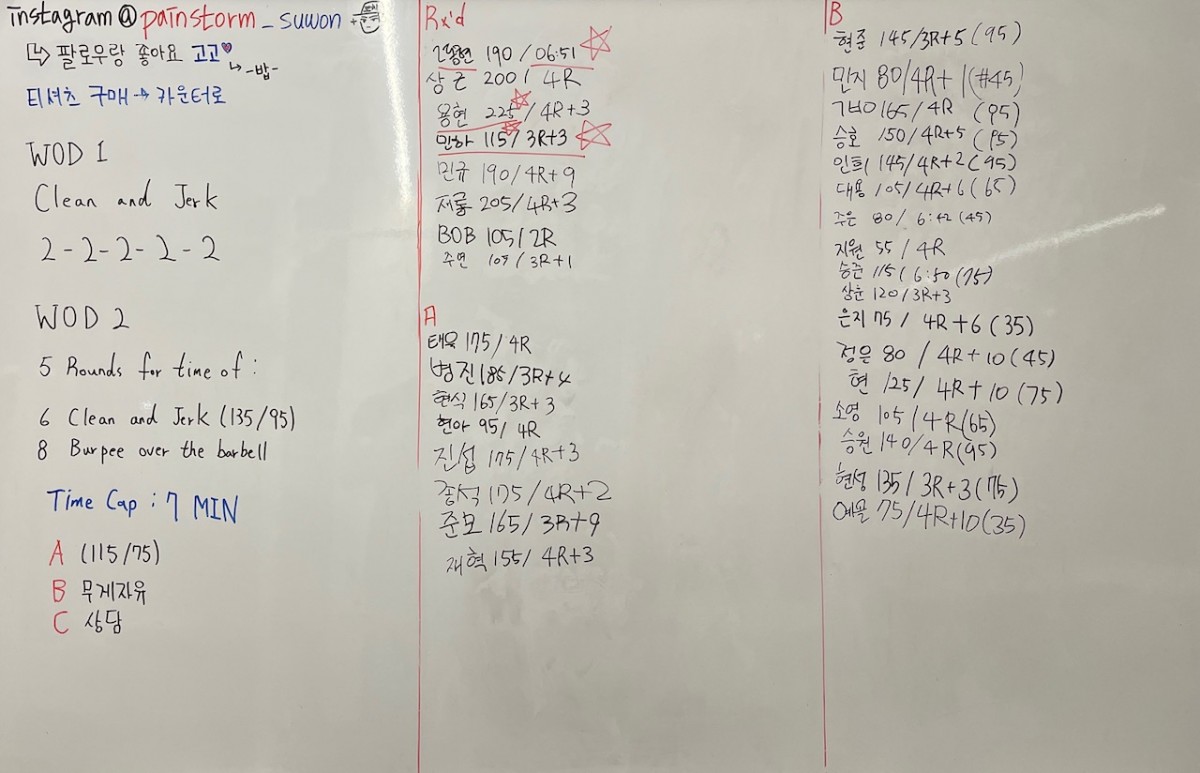 instagram@painstorm_suwon
↳ 팔로우랑 좋아요 고고♥
↳ -밥-
티셔츠 구매 → 카운터로
WOD 1
Clean and Jerk
2-2-2-2-2
WOD 2
5 Rounds for time of :
6 Clean and Jerk (135/95)
8 Burpee over the barbell
Time Cap : 7 MIN
A (115/75)
B 무게자유
C 상담
Rx'd
190 / 06:51 ☆
상근 200 / 4R
용현 225☆ / 4R+3
민하 115☆ / 3R+3 ☆
민규 190 / 4R+9
재룡 205 / 4R+3
BOB 105 / 2R
주연 105 / 3R+1
A
태욱 175 / 4R
병진 185 / 3R+4
현식 165 / 3R+3
현아 95 / 4R
진섭 175 / 4R+3
종석 175 / 4R+2
준모 165 / 3R+9
재혁 155 / 4R+3
B
현준 145/3R+5 (95)
민지 80/4R+1 (#45)
165/4R (95)
승호 150/4R+5 (95)
인희 145/4R+2 (95)
대용 105/4R+6 (65)
주은 80 / 6:42 (45)
지원 55 / 4R
승준 115 / 6:50 (75)
상훈 120 / 3R+3
은지 75 / 4R+6 (35)
정은 80 / 4R+10 (45)
현 125 / 4R+10 (75)
소영 105 / 4R (65)
승원 140 / 4R (95)
현석 135 / 3R+3 (75)
75/4R+10 (35)